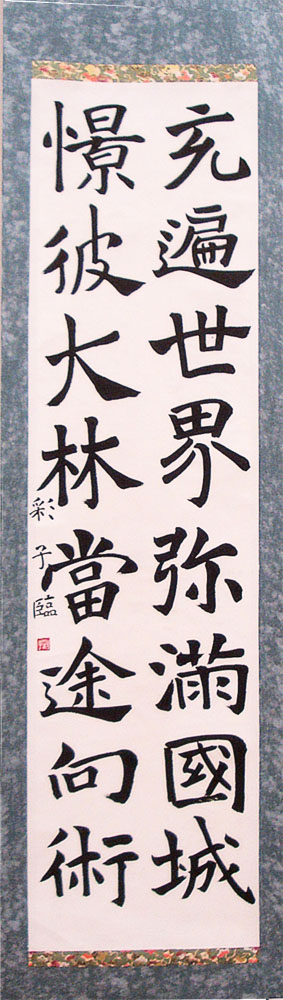 充遍世界弥滿國城
憬彼大林當途向術
彩子臨